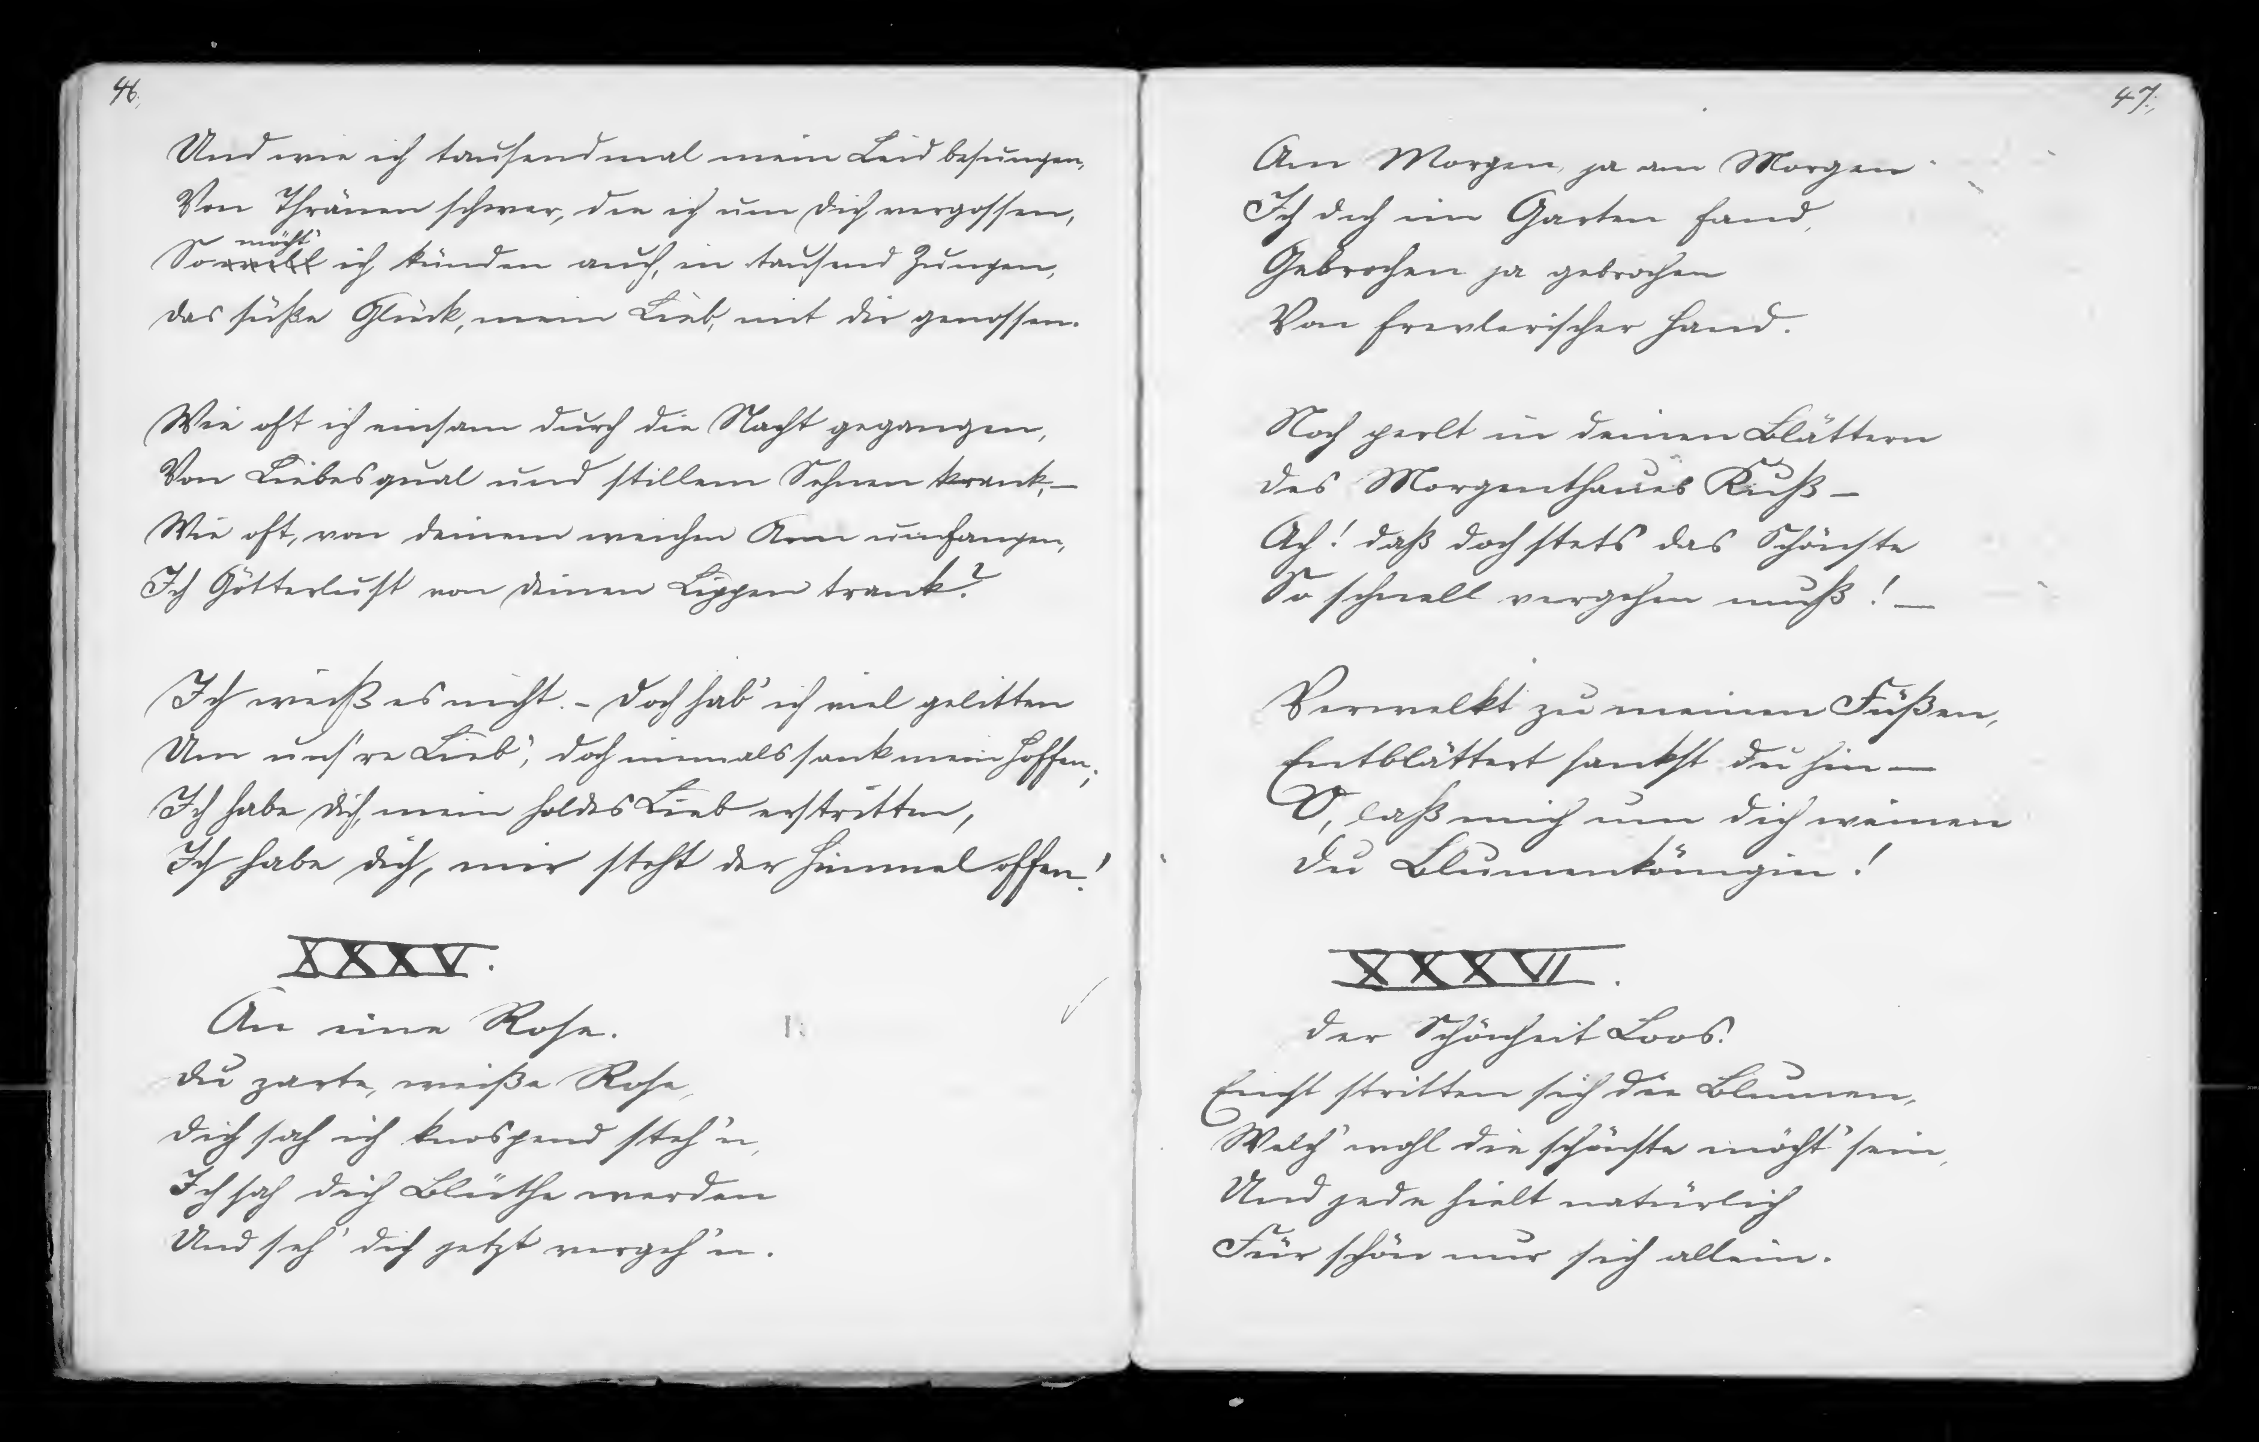 46.
Und wie ich tausendmal mein Leid besungen,
Von Thränen schwer, die ich um dich vergossen,
möcht'
So will ich künden auch, in tausend Zungen,
Das süße Glück, mein Lieb, mit dir genossen.
Wie oft ich einsam durch die Nacht gegangen,
Von Liebesqual und stillem Sehnen krank, –
Wie oft, von deinem weichen Arm umfangen,
Ich Götterlust von deinen Lippen trank?
Ich weiß es nicht. – Doch hab' ich viel gelitten
Um uns're Lieb', doch niemals sank mein Hoffen;
Ich habe dich, mein holdes Lieb erstritten,
Ich habe dich, mir steht der Himmel offen!
XXXV.
An eine Rose.
1.
Du zarte, weiße Rose,
Dich sah ich knospend steh'n,
Ich sah dich Blüthe werden
Und seh' dich jetzt vergeh'n.
47.
Am Morgen, ja am Morgen
Ich dich im Garten fand,
Gebrochen ja gebrochen
Von frevlerischer Hand.
Noch perlt in deinen Blättern
Des Morgenthaues Kuß –
Ach! daß doch stets das Schönste
So schnell vergehen muß! –
Verwelkt zu meinen Füßen,
Entblättert sankst du hin –
O, laß mich um dich weinen
Du Blumenkönigin!
XXXVI.
Der Schönheit Loos.
Einst stritten sich die Blumen,
Welch' wohl die schönste möcht' sein,
Und jede hielt natürlich
Für schön nur sich allein.